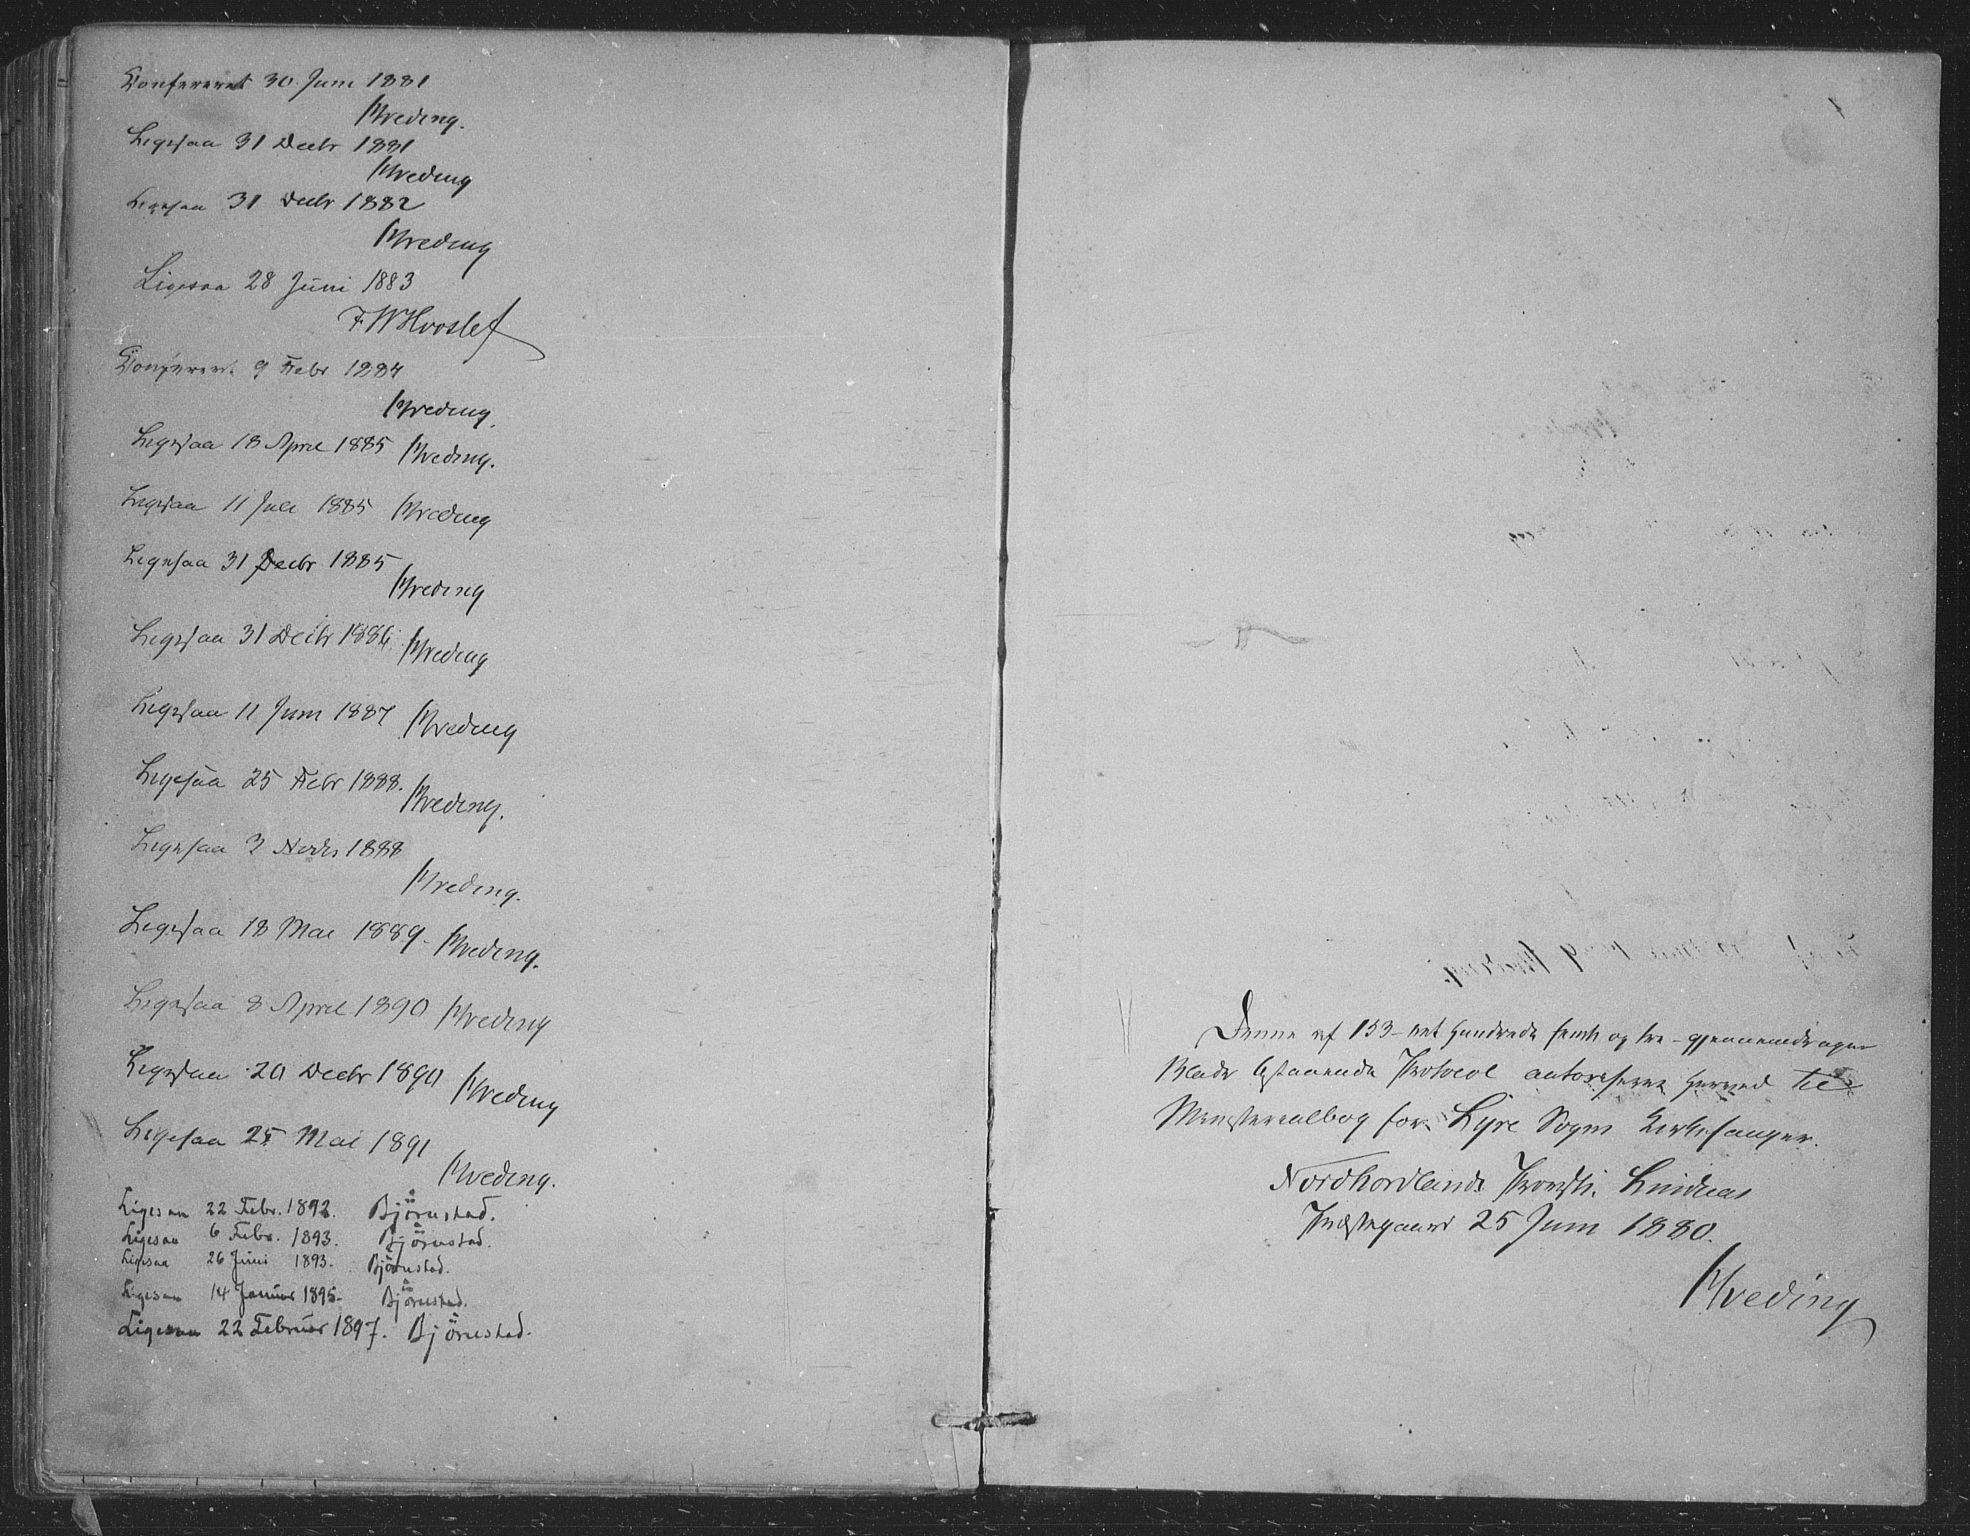 Confereret 30 Juni 1881
Kreding.
Ligesaa 31 Decbr 1881
Kreding
Ligesaa 31 Decbr 1882
Kreding
Ligesaa 28 Juni 1883
F. W Hvoslef
Confereret 9 Febr 1884
Kreding.
Ligesaa 18 April 1885 Kreding.
Ligesaa 11 Juli 1885 Kreding
Ligesaa 31 Decbr 1885
Kreding
Ligesaa 31 Decbr 1886 Kreding
Ligesaa 11 Juni 1887 Kreding
Ligesaa 25 Febr 1888. Kreding.
Ligesaa 3 Novbr 1888
Kreding.
Ligesaa 18 Mai 1889. Kreding.
Ligesaa 8 April 1890 Kreding
Ligesaa 20 Decbr 1890 Kreding
Ligesaa 25 Mai 1891
Kreding.
Ligesaa 22 Febr. 1892. Björnstad.
Ligesaa 6 Febr. 1893. Björnstad.
Ligesaa 26 Juni 1893. Björnstad.
Ligesaa 14 Januar 1895. Björnstad.
Ligesaa 22 Februar 1897. Björnstad.
Denne af 153 - et hundrede femti og tre - gjennemdragne
Blade bestaaende Protocol autoriseres herved til
Ministerialbog for Lyre Sogns Kirkesanger.
Nordhordlands Provsti. Lindaas
Præstegaard 25 Juni 1880.
Kreding